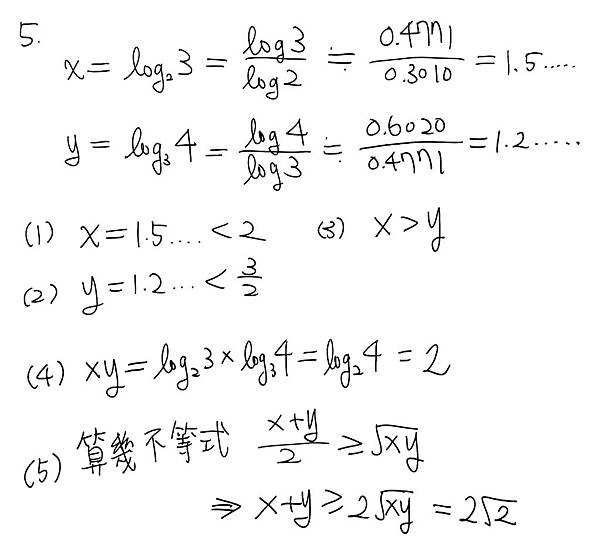 5.
x = log₂3 = log3/log2 ≒ 0.4771/0.3010 = 1.5.....
y = log₃4 = log4/log3 ≒ 0.6020/0.4771 = 1.2.....
(1) x = 1.5.... < 2 (3) x > y
(2) y = 1.2... < 3/2
(4) xy = log₂3 × log₃4 = log₂4 = 2
(5) 算幾不等式 (x+y)/2 ≥ √xy
⇒ x+y ≥ 2√xy = 2√2